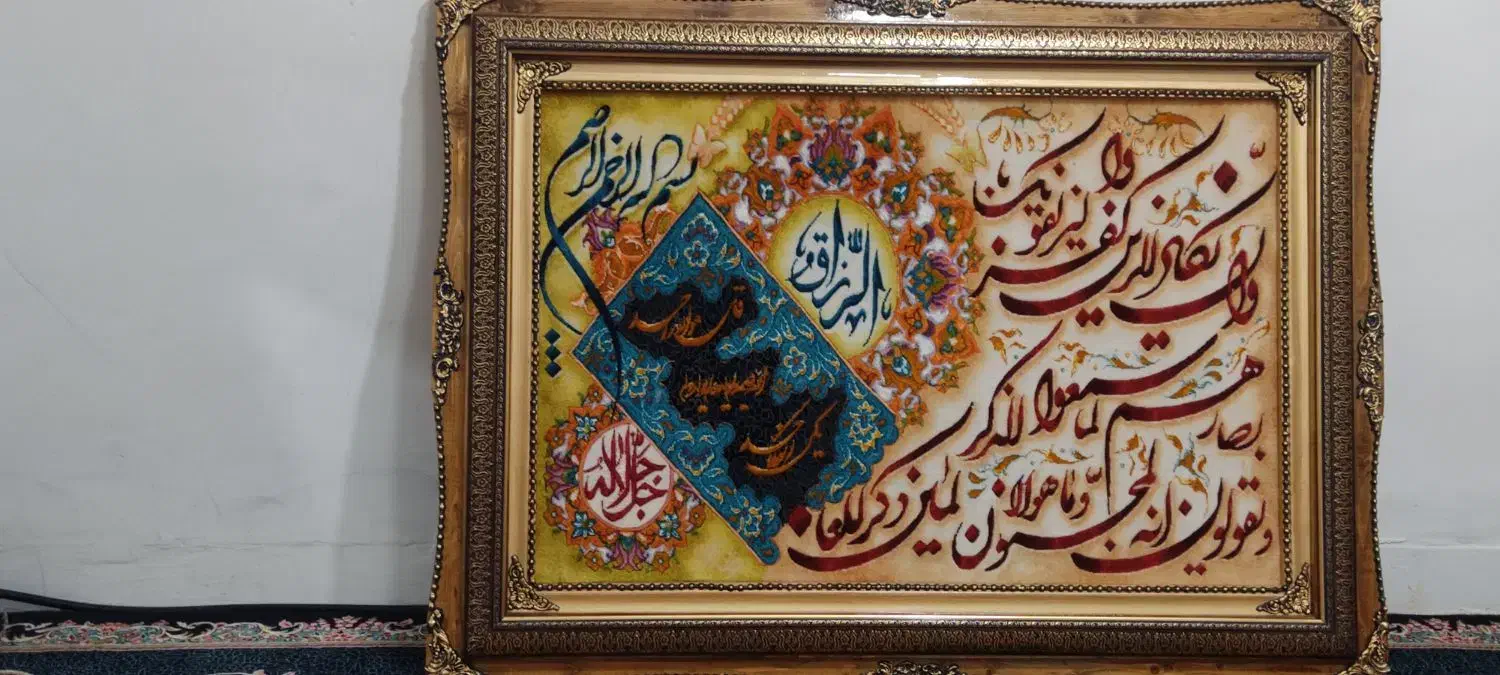 بسم الله الرحمن الرحیم
الرزاق
قل هو الله احد
جل جلاله
وان یکاد الذین کفروا لیزلقونک
بابصارهم لما سمعوا الذکر
ویقولون انه لمجنون وما هو الا ذکر للعالمین